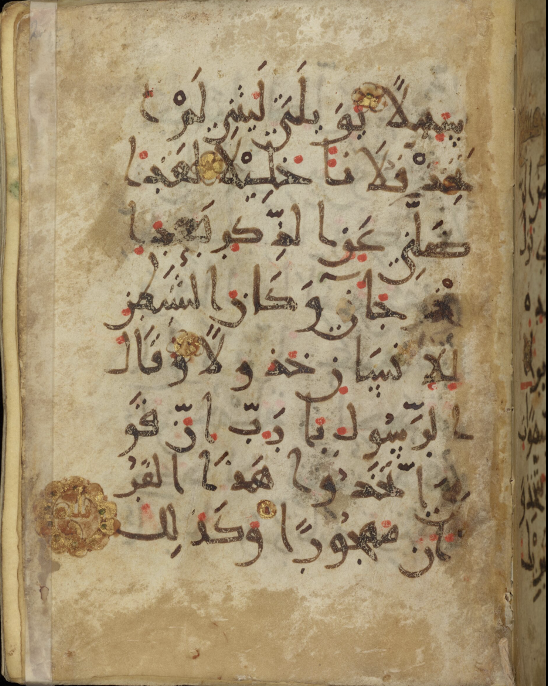 سَبِيلًا يَوَيلَتَى لَيتَنِى لَمْ ا
تخِذْ فُلَانًا خَلِيلًا لَقَد ا
ضَلَّنِى عَنِ الذِّكرِ بَعدَ ا
ذْ جَانِى وَكَانَ الشَّيطَن
لِلاِنسَانِ خَذُولًا وَقَالَ
الرَّسُولُ يا رَبِّ اِنَّ قَو
مِى اتَّخَذُوا هَذَا القُر
انَ مَهجُورًا وَكَذَلِكَ